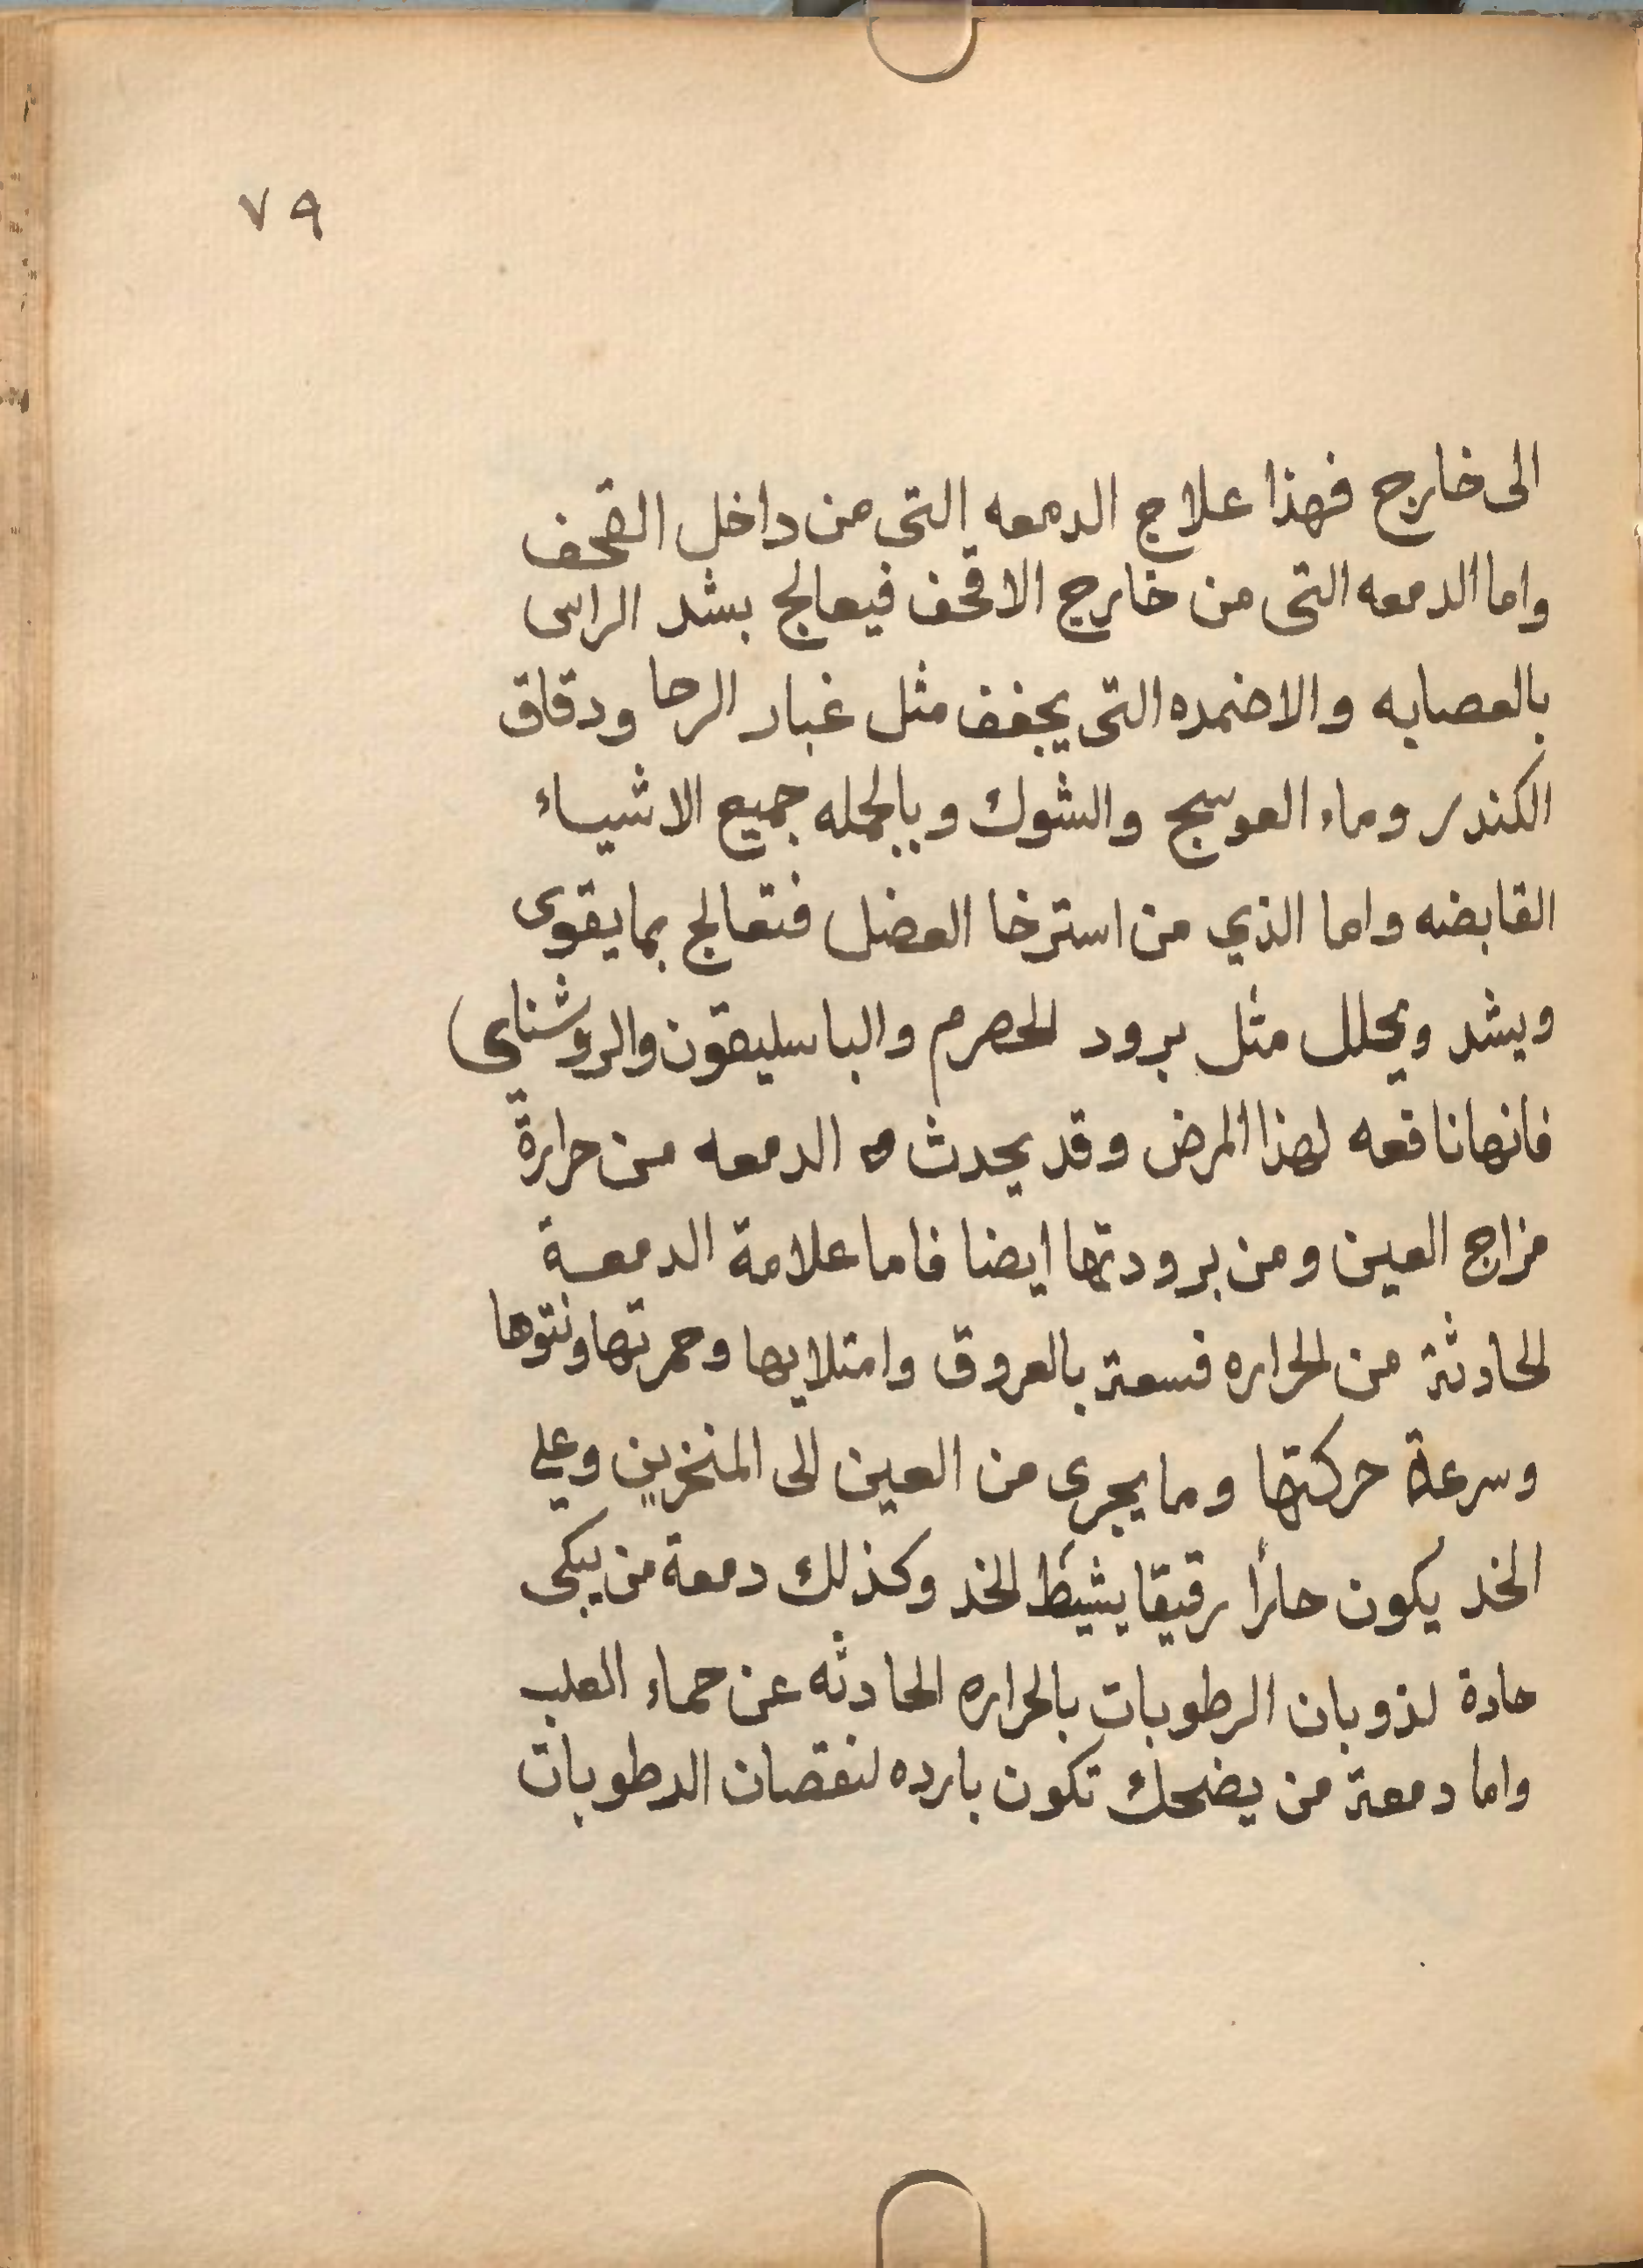 ٧٩
الى خارج فهذا علاج الدمعه التى من داخل القحف
واما الدمعه التى من خارج الاقحف فيعالج بشد الراس
بالعصابه والاضمده التى يجفف مثل غبار الرحا ودقاق
الكندر وماء العوسج والشوك وبالجمله جميع الاشياء
القابضه واما الذي من استرخا العضل فتعالج بما يقوى
ويشد ويحلل مثل برود الحصرم والباسليقون والروشناي
فانها نافعه لهذا المرض وقد يحدث الدمعه من حرارة
مزاج العين ومن برودتها ايضا فاما علامة الدمعة
الحادثة من الحراره فسعة بالعروق وامتلايها وحمرتها ونتوها
وسرعة حركتها وما يجرى من العين الى المنخرين وعلي
الخد يكون حارًا رقيقا يشيط الخد وكذلك دمعة من يبكى
حادة لذوبان الرطوبات بالحراره الحادثه عن حماء القلب
واما دمعة من يضحك تكون بارده لنقصان الرطوبات